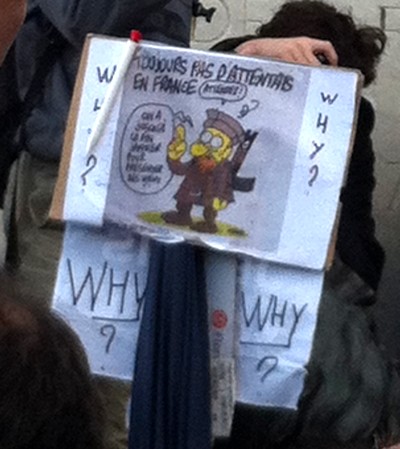 TOUJOURS PAS D'ATTENTATS
EN FRANCE
ATTENDEZ!
ON A
JUSQU'À
LA FIN
JANVIER
POUR
PRÉSENTER
SES VŒUX
W
H
?
W
H
Y
?
WHY
?
WHY
?